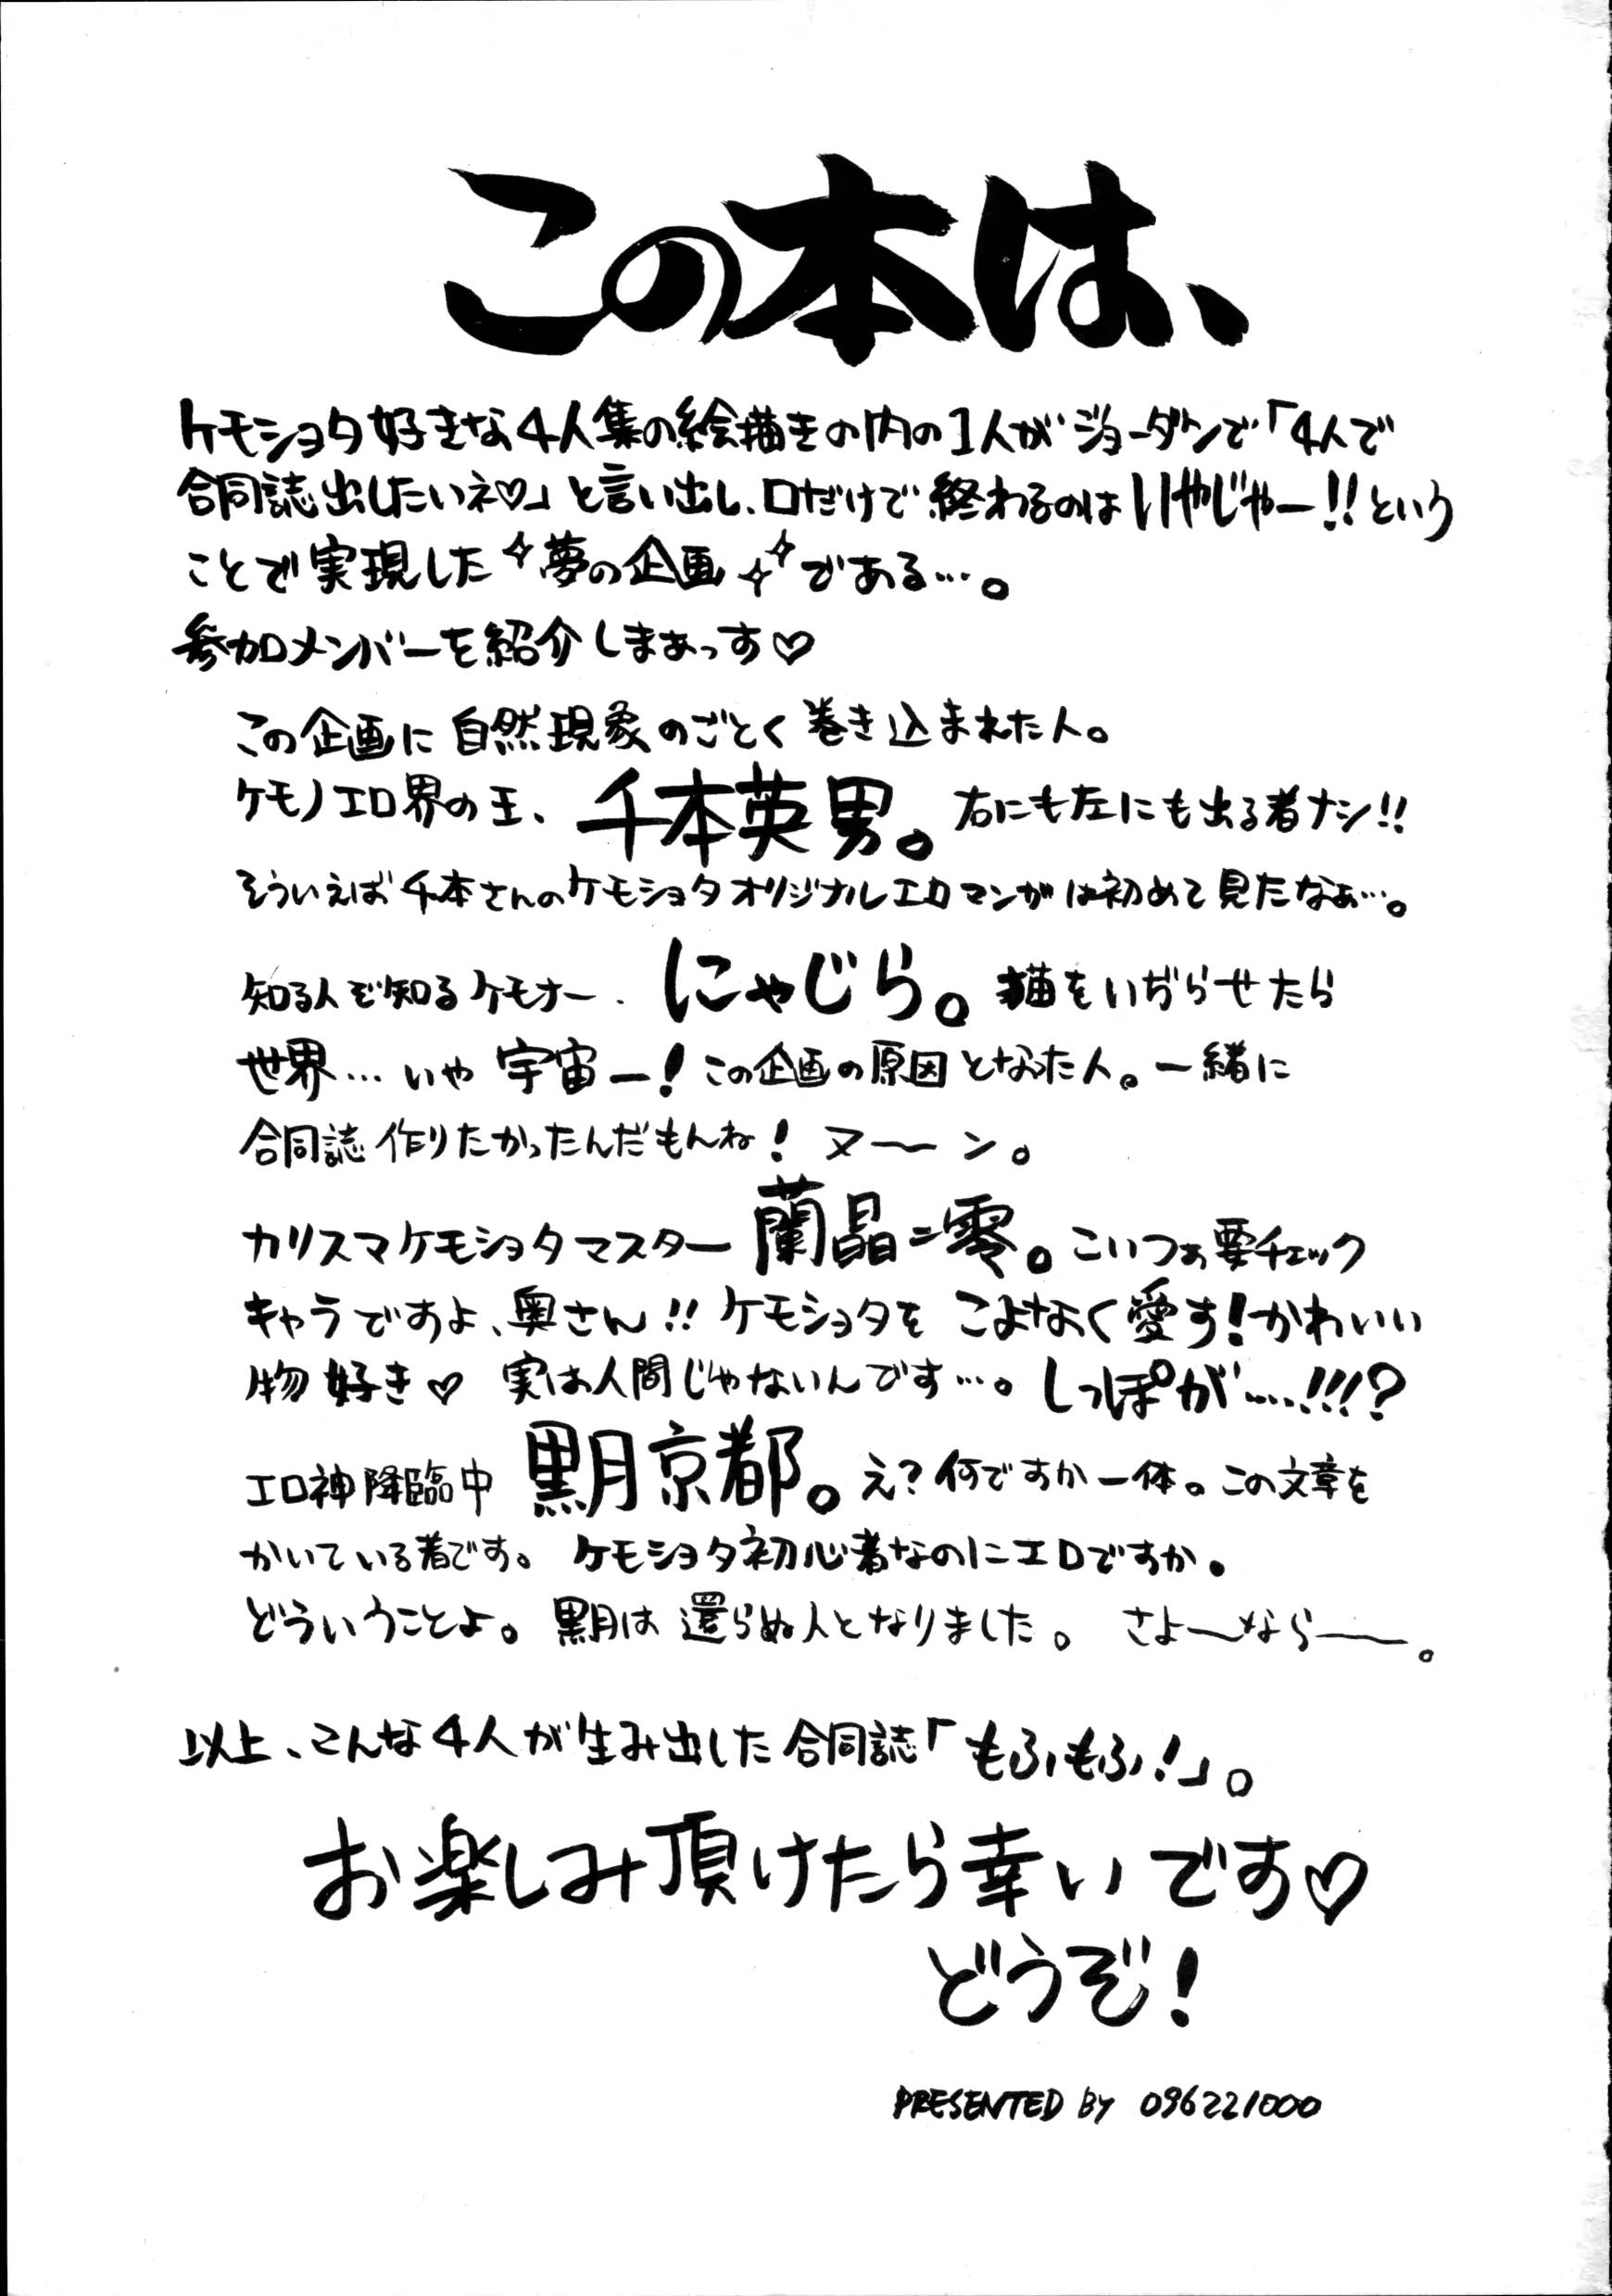 この本は、
ケモショタ好きな4人集の絵描きの内の1人がジョーダンで「4人で
合同誌出したいネ♡」と言い出し、口だけで終わるのはいやじゃー!!という
ことで実現した✧夢の企画✧✧である…。
参加メンバーを紹介しまぁっす♡
この企画に自然現象のごとく巻き込まれた人。
ケモノエロ界の王、千本英男。右にも左にも出る者ナシ!!
そういえば千本さんのケモショタオリジナルエロマンガは初めて見たなぁ…。
知る人ぞ知るケモナー、にゃじら。猫をいぢらせたら
世界…いや宇宙一!この企画の原因となった人。一緒に
合同誌作りたかったんだもんね!ヌ〜〜ン。
カリスマケモショタマスター蘭晶=零。こいつぁ要チェック
キャラですよ、奥さん!!ケモショタをこよなく愛す!かわいい
物好き♡ 実は人間じゃないんです…。しっぽが……!!!?
エロ神降臨中 黒月京都。え?何ですか一体。この文章を
かいている者です。ケモショタ初心者なのにエロですか。
どういうことよ。黒月は還らぬ人となりました。さよ〜なら〜。
以上、こんな4人が生み出した合同誌「もふもふ!」。
お楽しみ頂けたら幸いです♡
どうぞ!
PRESENTED BY 096221000